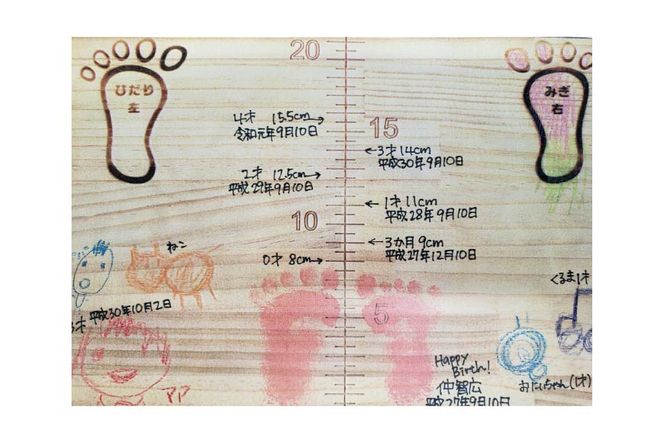 20
ひだり
左
みぎ
右
4才 15.5cm→
令和元年9月10日
15
←3才14cm
平成30年9月10日
2才 12.5cm→
平成29年9月10日
←1才11cm
平成28年9月10日
10
←3か月9cm
平成27年12月10日
ねこ
0才 8cm→
くるま1才
平成30年10月2日
3才
5
Happy
Birth!
仲智広
平成27年9月10日
おにいちゃん(1才)